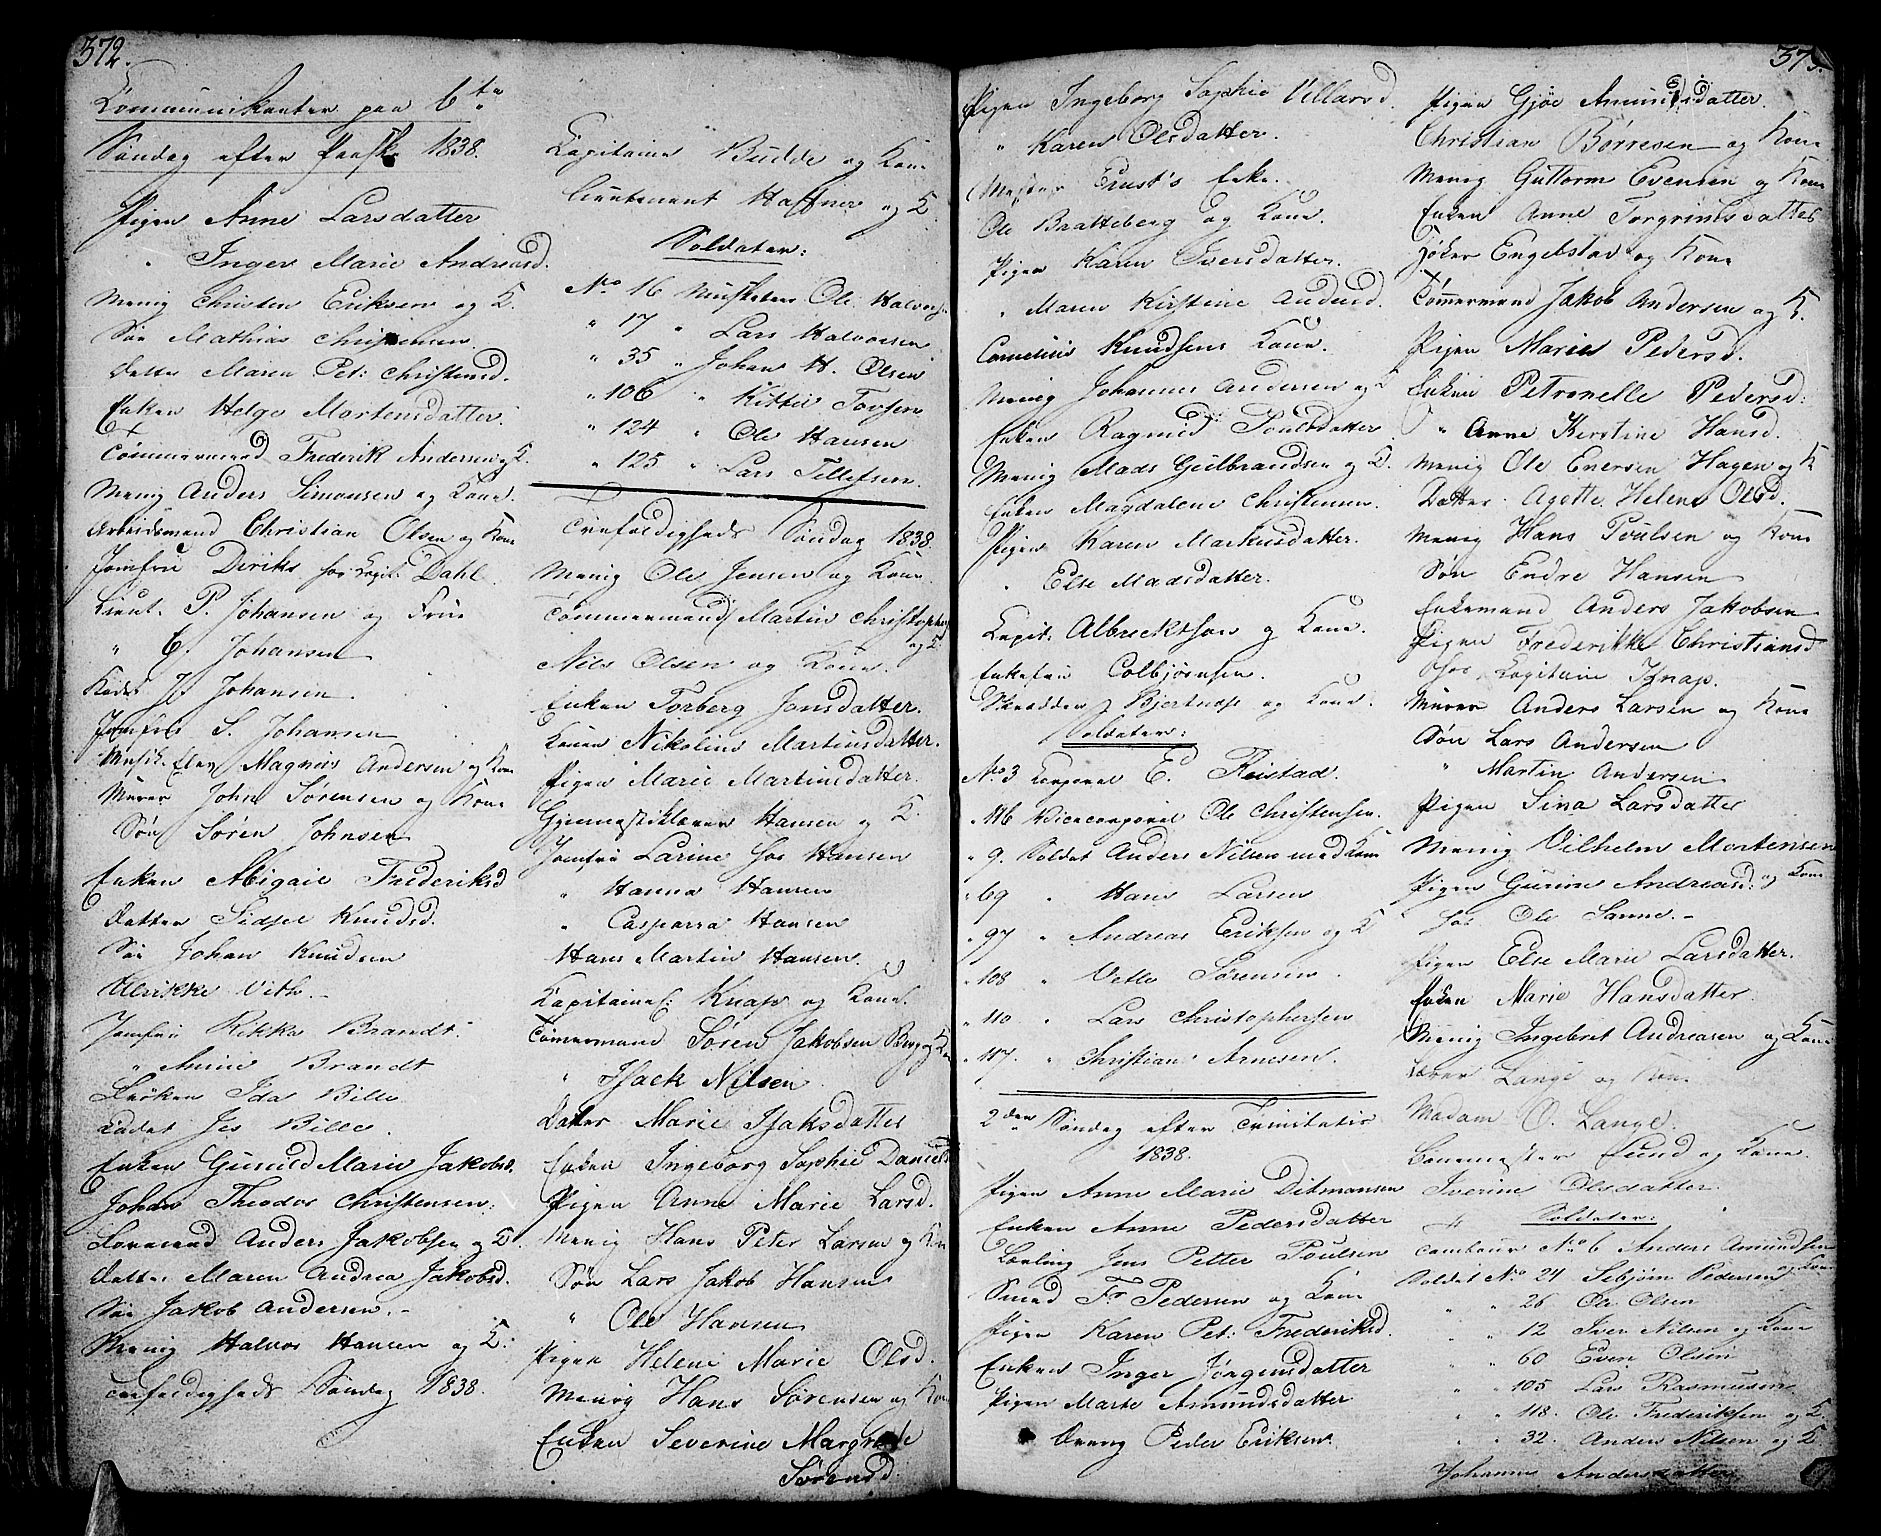 372.
Communikanter paa 6te
Søndag efter Paaske 1838.
Pigen Anne Larsdatter
" Inger Marie Andreasd.
Menig Christen Eriksen og K.
Søn Mathias Christensen.
Datter Maren Pet: Christensd.
Enken Helge Mortensdatter.
Tømmermand Frederik Andersen og K.
Menig Anders Simonsen og Kone.
Arbeidsmand Christian Olsen og Kone
Jomfru Diriks hos Capit: Dahl.
Lieut. P. Johansen og Frue
" C. Johansen
Kadet J. Johansen.
Jomfru S. Johansen
Musik. Elev Magnus Andersen og Kone
Murer John Sørensen og Kone
Søn Søren Johnsen
Enken Abigael Frederiksd
Datter Sidsel Knudsd.
Søn Johan Knudsen
Ulrikke Vith.
Jomfru Rikka Brandt.
" Annie Brandt
Frøken Ida Bille
Cadet Js Bille.
Enken Gunild Marie Jakobsd.
Johan Theodor Christensen.
Formand Anders Jakobsen og K.
Datter Maren Andrea Jakobsd.
Søn Jakob Andersen.
Menig Halvor Hansen og K:
Trefoldigheds Søndag 1838.
Capitaine Budde og Kone
Lieutenant Haffner og K.
Soldater:
No 16 Musketer Ole Halvors.
" 17 " Lars Halvorsen
" 35 " Johan H. Olsen
" 106 " Kittil Torsen
" 124 " Ole Hansen
" 125 " Lars Tellefsen.
Trefoldigheds Søndag 1838.
Menig Ole Jensen og Kone.
Tømmermand Martin Christophs
og K.
Nils Olsen og Kone.
Enken Torberg Jonsdatter.
Konen Nikoline Martinsdatter.
Pigen Marie Martinsdatter.
Gymnastiklærer Hansen og K.
Jomfru Larine hos Hansen
" Hanna Hansen
" Casparra Hansen
Hans Martin Hansen.
Kapitaine Knap og Kone.
Tømmermand Søren Jakobsen Berg og K
" Isack Nilsen
Datter Marie Isaksdatter
Enken Ingeborg Sophie Daniels
Pigen Anne Marie Larsd.
Menig Hans Peter Larsen og Kon
Søn Lars Jakob Hansen
" Ole Hansen
Pigen Helene Marie Olsd.
Menig Hans Sørensen og Kon
Enken Severine Margrethe
Sørensd.
373.
Pigen Ingeborg Sophie Villarsd.
" Karen Olsdatter.
Mester Ernst's Enke.
Ole Braatteberg og Kone.
Pigen Karen Iversdatter.
" Maren Kirstine Andersd.
Cornelius Knudsens Kone.
Menig Johannes Andersen og K
Enken Ragnild Poulsdatter
Menig Mads Gulbrandsen og K.
Enken Magdalene Christensen.
Pigen Karen Markusdatter.
" Else Madsdatter.
Capit: Albrecktson og Kone.
Enkefru Colbjørnsen.
Skrædder Bjertnæs og Kone.
Soldater:
No 3 Corporal E. Reistad.
" 116 Vicecorporal Ole Christensen.
" 9. Soldat Anders Nilsen med Kone
" 69 " Hans Larsen
" 97 " Andreas Eriksen og K
" 108 " Vetle Sørensen.
" 110 " Lars Christophersen
" 117. " Christian Arnesen.
2den Søndag efter Trinitatis
1838.
Pigen Anne Marie Ditmansen
Enken Anne Pedersdatter
Lærling Jens Petter Poulsen
Smed Fr. Pedersen og Kone
Pigen Karen Pet: Frederiksd.
Enken Inger Jørgensdatter
Pigen Marte Amundsdatter
Dreng Peder Eriksen.
Pigen Gjøe Amundsdatter.
Christian Børresen og Kone
Menig Guttorm Evensen og Kone
Enken Anne Torgrimsdatter
Høker Engelstad og Kone
Tømmermand Jakob Andersen og K.
Pigen Marie Pedersd.
Enken Petronelle Pedersd:
" Anne Kirstine Hansd.
Menig Ole Enersen Hagen og K
Datter Agatte Helene Olsd.
Menig Hans Poulsen og Kone
Søn Endre Hansen
Enkemand Anders Jakobsen
Pigen Frederikke Christiansd
hos Capitain Knap.
Murer Anders Larsen og Kone
Søn Lars Andersen
" Martin Andersen
Pigen Sina Larsdatter
Menig Vilhelm Mortensen
og Kone
Pigen Gurine Andreasd:
hos Ole Sanne.
Pigen Else Marie Larsdatter.
Enken Marie Hansdatter.
Menig Ingebret Andreasen og Kone
Lærer Lange og Kone
Madam O. Lange.
Bonemester Lund og Kone.
Iverine Olsdatter.
Soldater:
Tambour No 6 Anders Amundsen
og Kone
Soldat No 24 Sebjørn Pedersen
" " 26 Ole Olsen
" " 12 Iver Nilsen og Kone
" " 60 Even Olsen
" " 105 Lars Rasmusen
" " 118. Ole Frederiksen og K.
" " 32. Anders Nilsen og K
Johanne Andersdatter